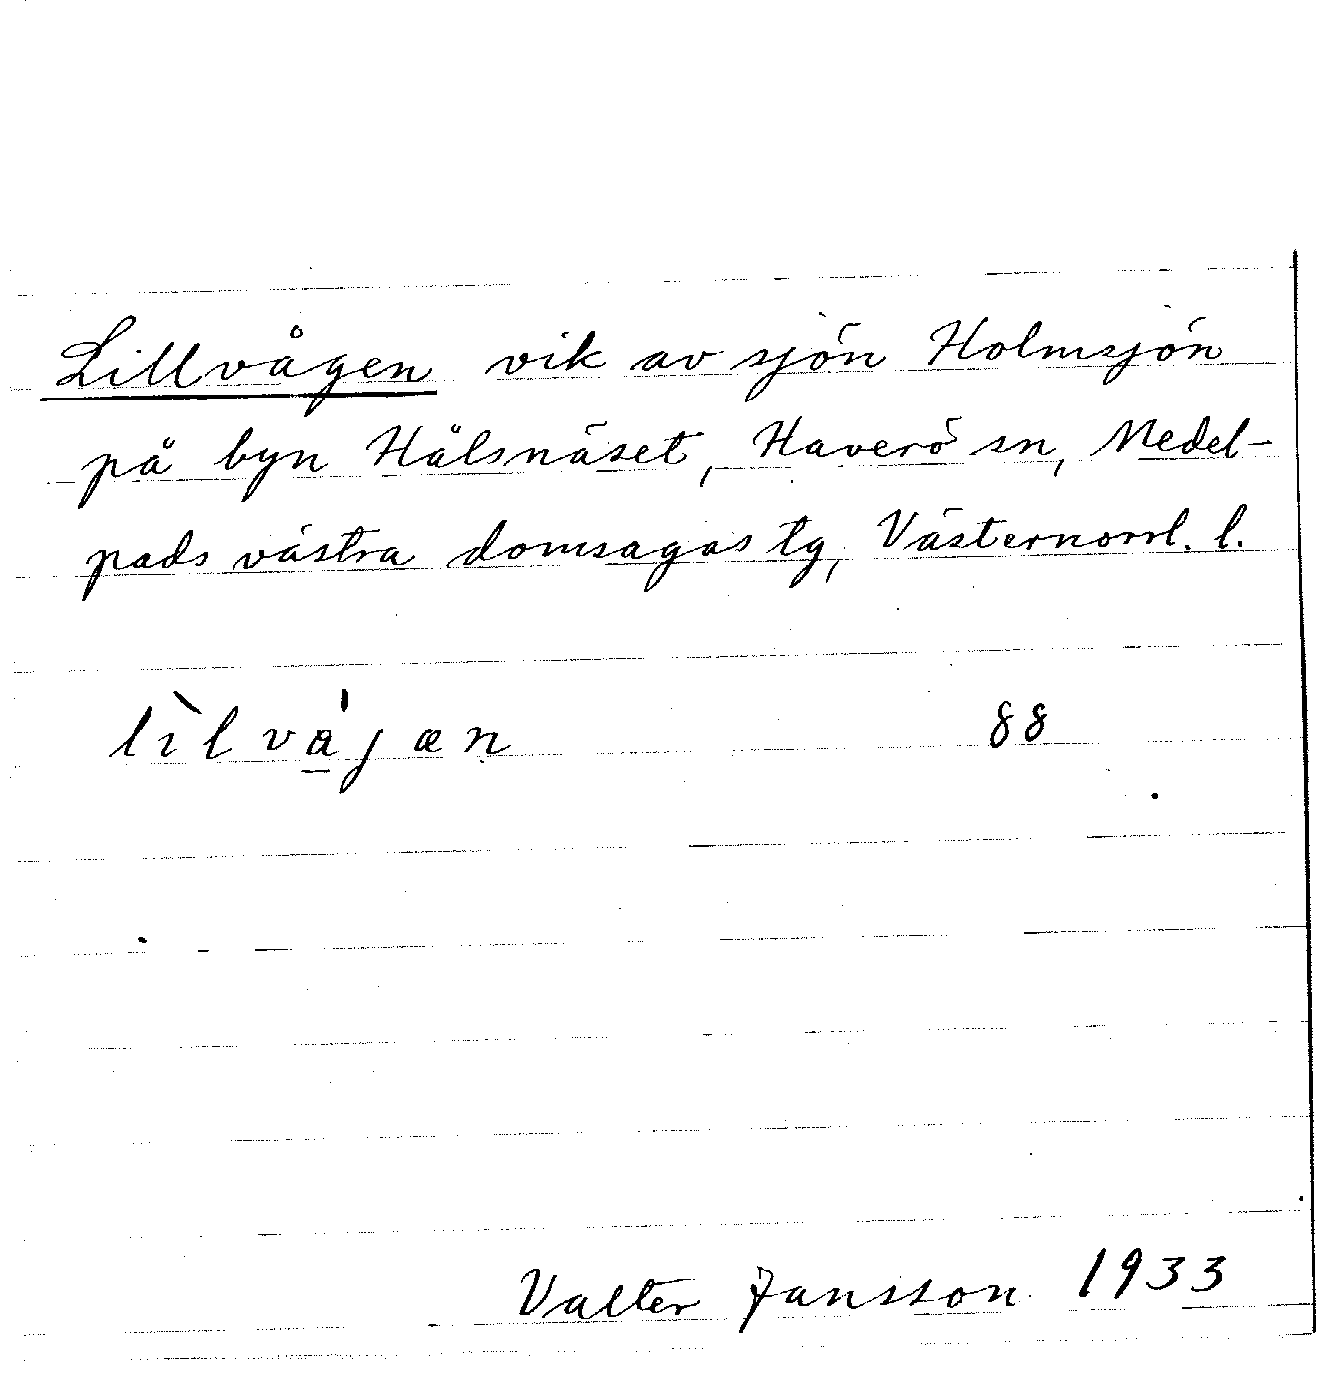 Lillvågen vik av sjön Holmsjön
på byn Hälsnäset, Haverö sn, Medel-
pads västra domsagas tg, Västernorrl. l.
lìlvájæn 88
Valter Jansson 1933